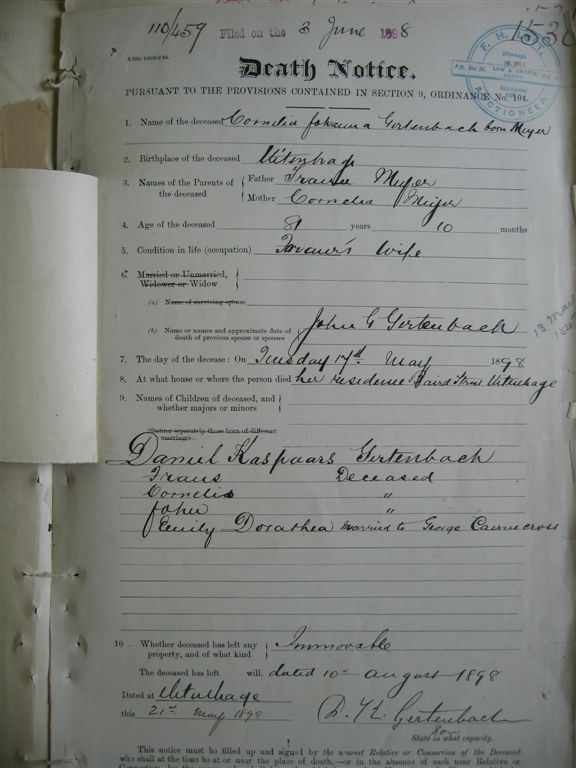 110/459 Filed on the 3 June 1898
Death Notice.
PURSUANT TO THE PROVISIONS CONTAINED IN SECTION 9, ORDINANCE No. 104.
1. Name of the deceased Cornelia Johanna Gertenbach born Meyer
2. Birthplace of the deceased Uitenhage
3. Names of the Parents of the deceased { Father Frans Meyer
Mother Cornelia Meyer
4. Age of the deceased 81 years 10 months
5. Condition in life (occupation) Farmer's Wife
6. Married or Unmarried,
Widower or Widow
(a) Name of surviving spouse
(b) Name or names and approximate date of death of previous spouse or spouses } John G Gertenbach
7. The day of the decease: On Tuesday 17th May 1898
8. At what house or where the person died her residence Baird Street Uitenhage
9. Names of Children of deceased, and whether majors or minors
(Stating separately those born of different marriages).
Daniel Kaspaars Gertenbach
Frans Deceased
Cornelis "
John "
Emily Dorathea married to George Cairncross
10. Whether deceased has left any property, and of what kind } Immovable
The deceased has left will. dated 10th August 1898
Dated at Uitenhage
this 21st May 1898
D. K. Gertenbach
Son
State in what capacity.
This notice must be filled up and signed by the nearest Relative or Connection of the Deceased
who shall at the time be at or near the place of death,—or in the absence of such near Relative or